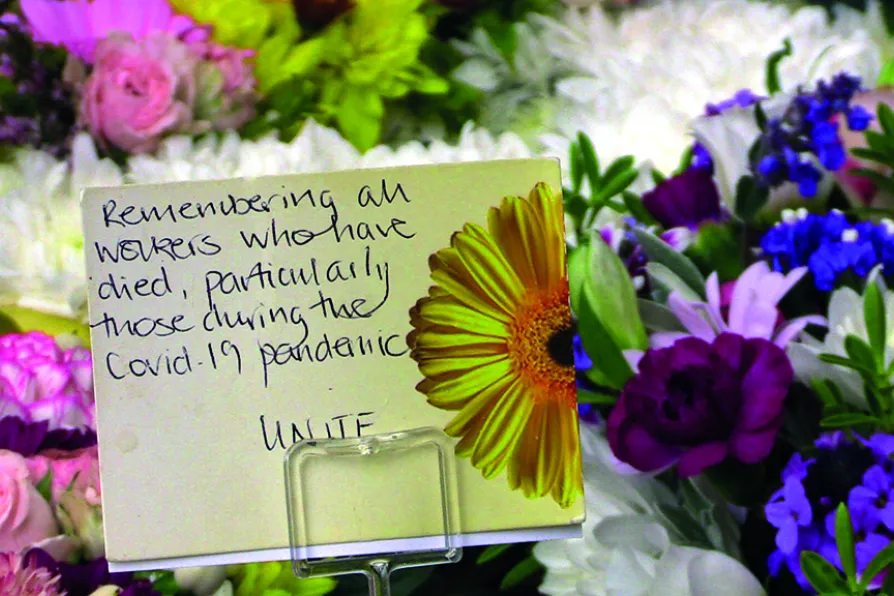 Remembering all
workers who have
died, particularly
those during the
Covid-19 pandemic
UNITE